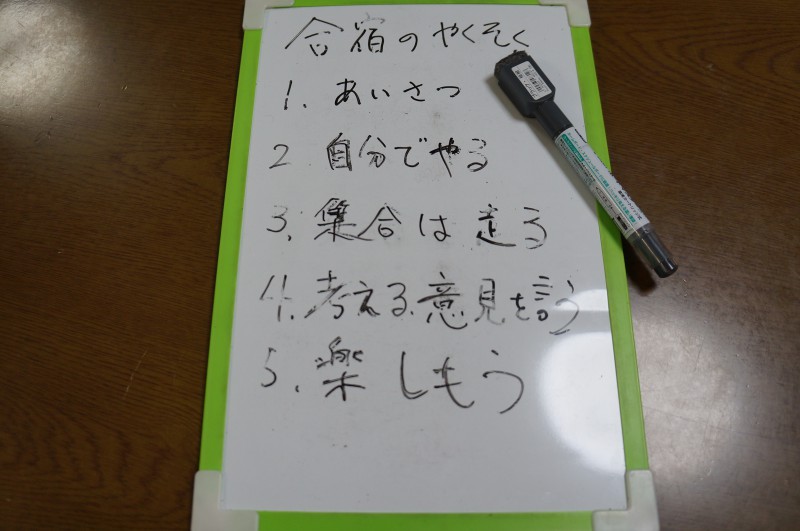 合宿のやくそく
1. あいさつ
2 自分でやる
3. 集合は走る
4. 考える.意見を言う
5. 楽しもう